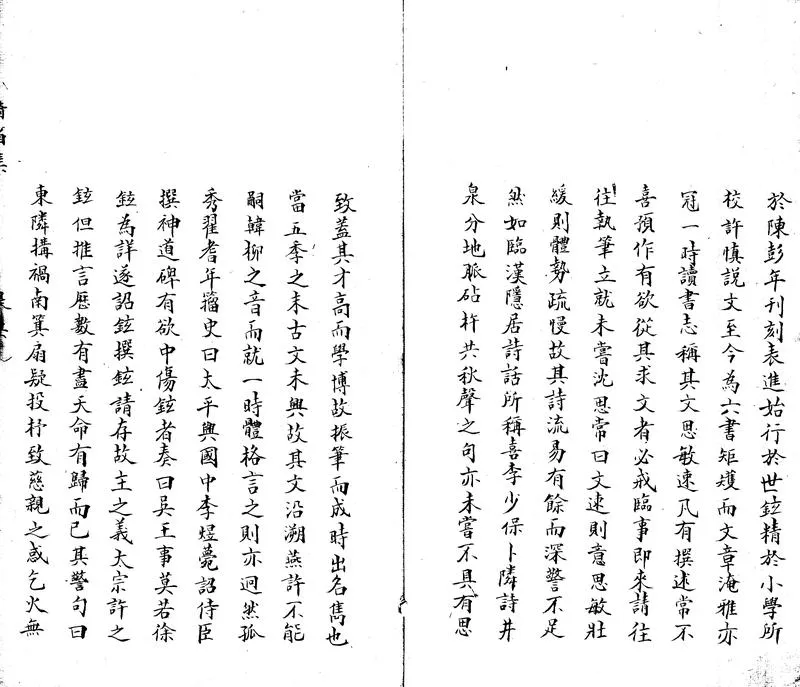 於陳彭年刊刻表進始行於世鉉精於小學所
校許慎說文至今為六書矩矱而文章淹雅亦
冠一時讀書志稱其文思敏速凡有撰述常不
喜預作有欲從其求文者必戒臨事即來請往
往執筆立就未嘗沈思常曰文速則意思敏壯
緩則體勢疏慢故其詩流易有餘而深警不足
然如臨漢隱居詩話所稱喜李少保卜隣詩井
泉分地脈砧杵共秋聲之句亦未嘗不具有思
致蓋其才高而學博故振筆而成時出名雋也
當五季之末古文未興故其文沿溯燕許不能
嗣韓柳之音而就一時體格言之則亦迥然孤
秀翟耆年籀史曰太平興國中李煜薨詔侍臣
撰神道碑有欲中傷鉉者奏曰吳王事莫若徐
鉉為詳遂詔鉉撰鉉請存故主之義太宗許之
鉉但推言歷數有盡天命有歸而已其警句曰
東隣搆禍南箕扇疑投杼致慈親之惑乞火無